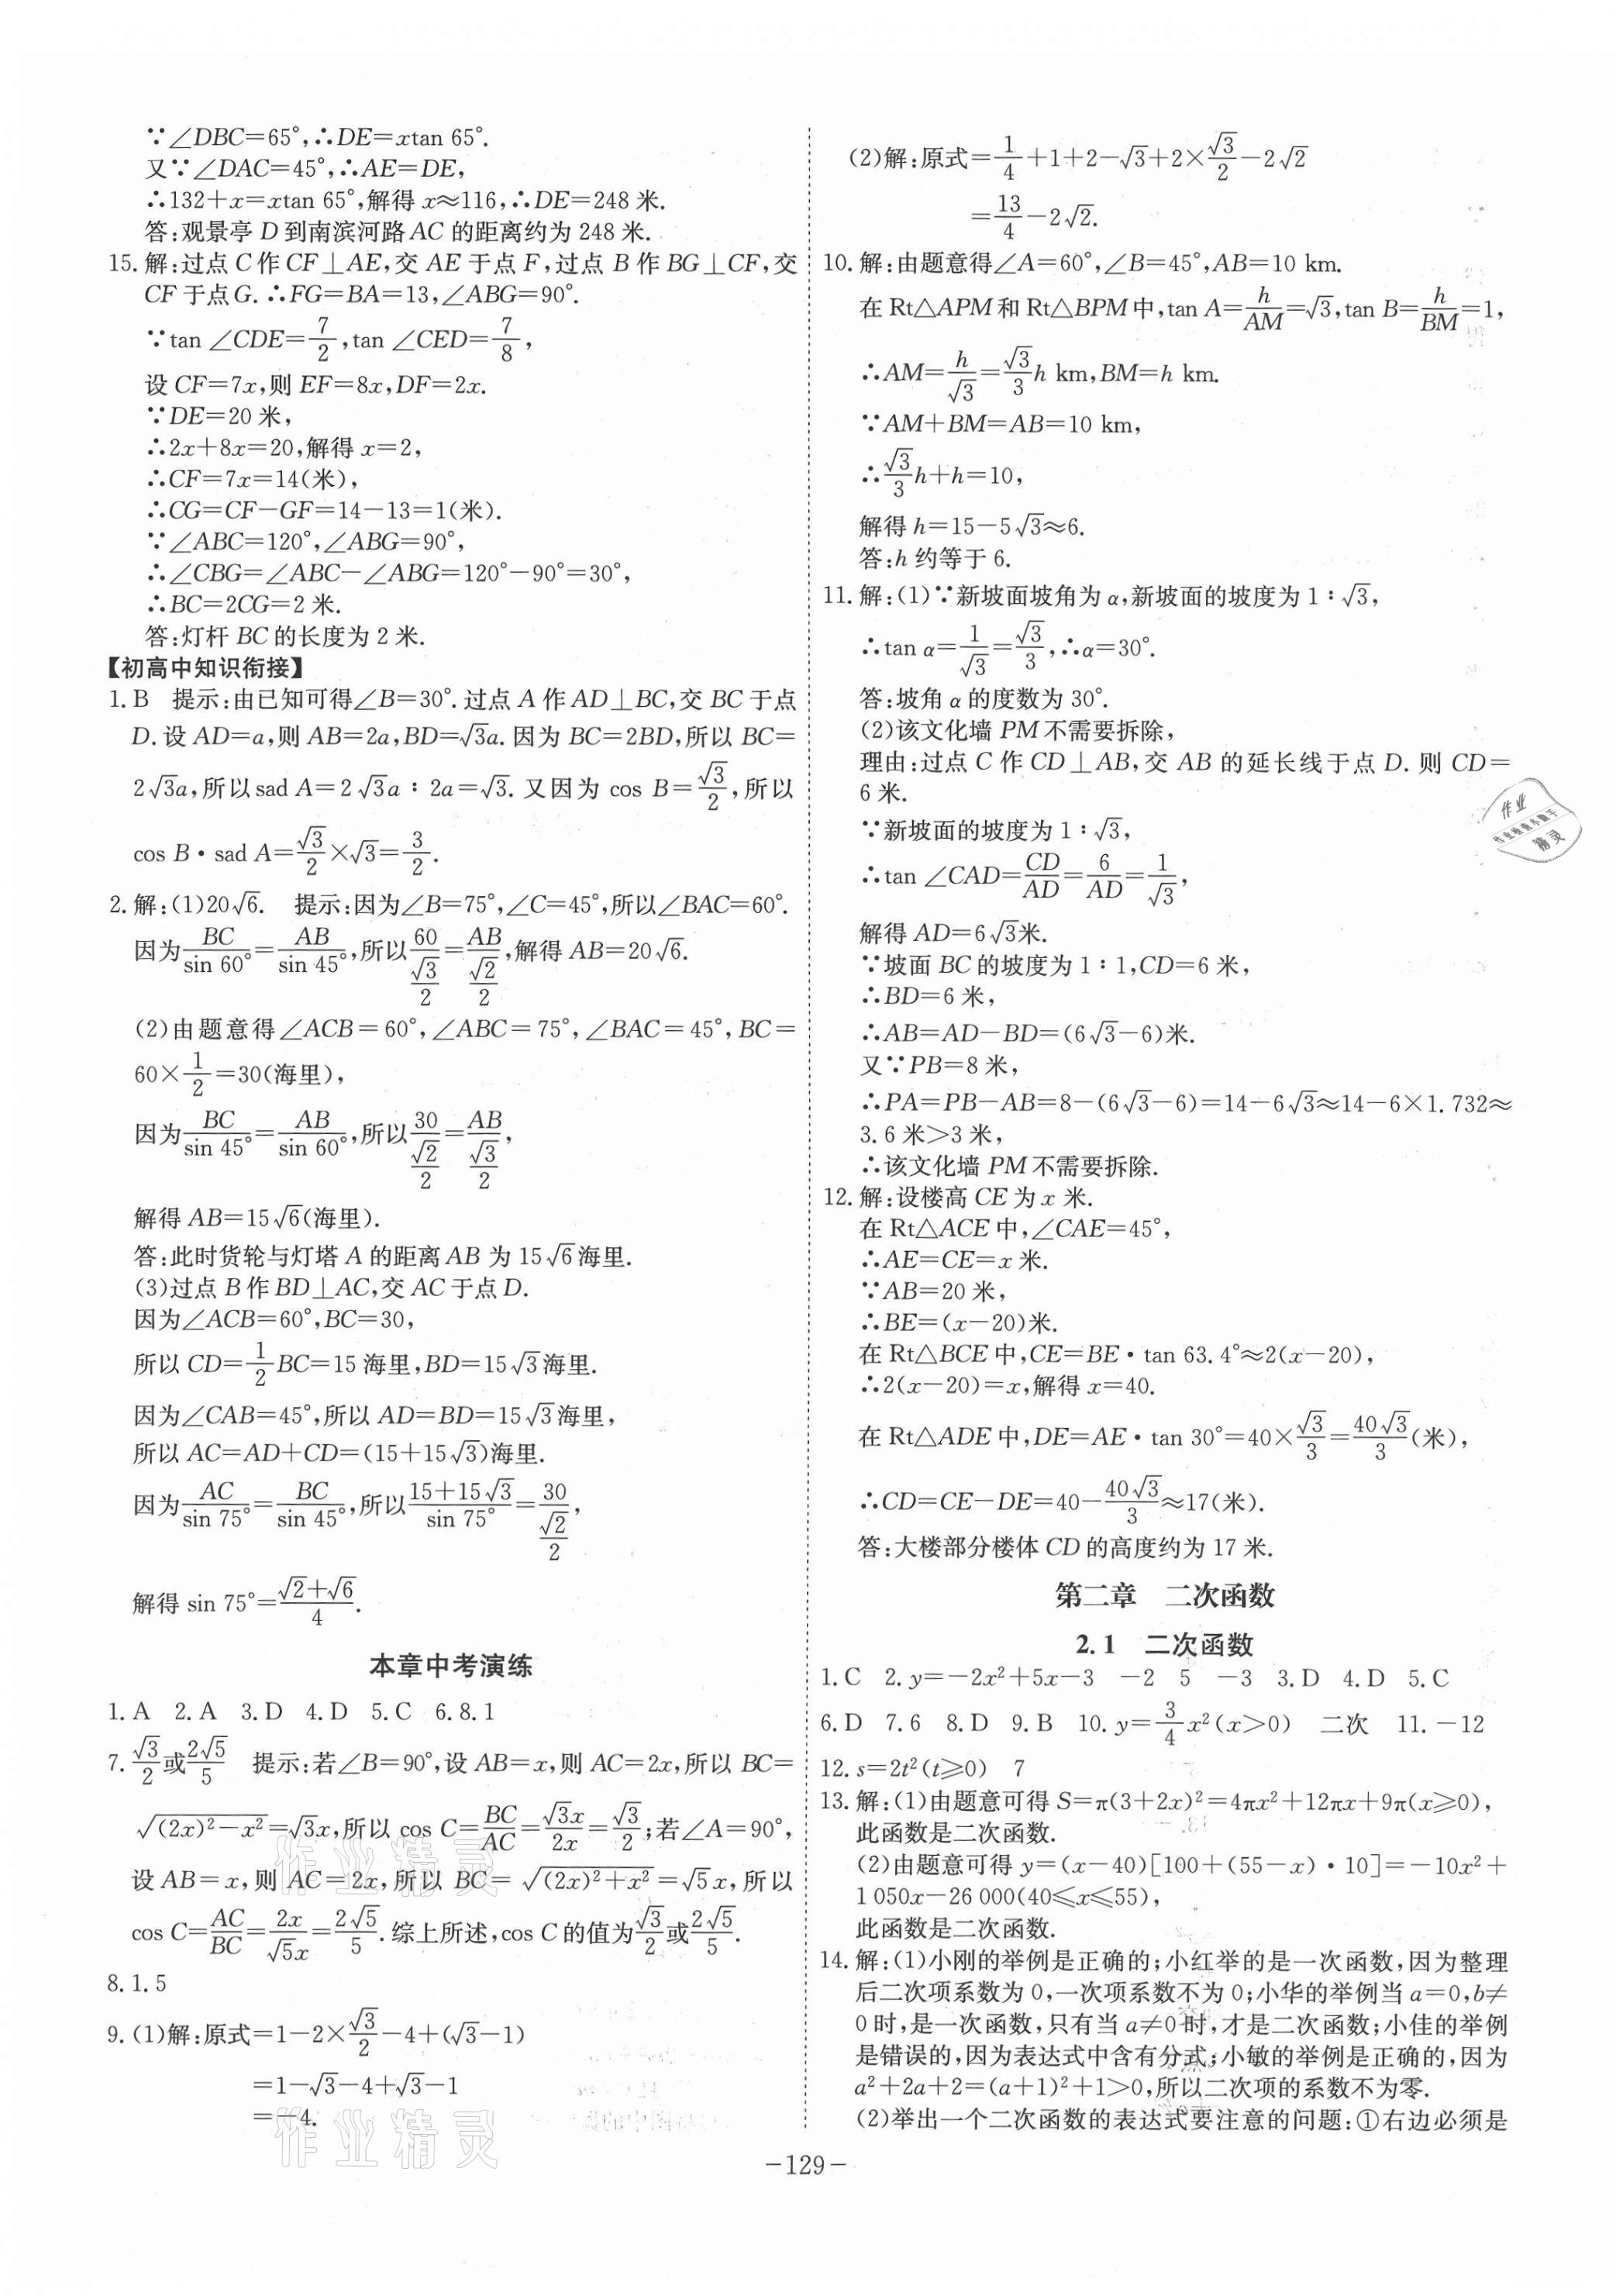 ∵∠DBC=65°,∴DE=xtan 65°.
又∵∠DAC=45°,∴AE=DE,
∴132+x=xtan 65°,解得 x≈116,∴DE=248 米.
答:观景亭 D 到南滨河路 AC 的距离约为 248 米.
15. 解:过点 C 作 CF⊥AE,交 AE 于点 F,过点 B 作 BG⊥CF,交
CF 于点 G. ∴FG=BA=13,∠ABG=90°.
∵tan ∠CDE=7/2,tan ∠CED=7/8,
设 CF=7x,则 EF=8x,DF=2x.
∵DE=20 米,
∴2x+8x=20,解得 x=2,
∴CF=7x=14(米),
∴CG=CF-GF=14-13=1(米).
∵∠ABC=120°,∠ABG=90°,
∴∠CBG=∠ABC-∠ABG=120°-90°=30°,
∴BC=2CG=2 米.
答:灯杆 BC 的长度为 2 米.
【初高中知识衔接】
1. B 提示:由已知可得∠B=30°. 过点 A 作 AD⊥BC,交 BC 于点
D. 设 AD=a,则 AB=2a,BD=√3a. 因为 BC=2BD,所以 BC=
2√3a,所以 sad A=2√3a∶2a=√3. 又因为 cos B=√3/2,所以
cos B·sad A=√3/2×√3=3/2.
2. 解:(1)20√6. 提示:因为∠B=75°,∠C=45°,所以∠BAC=60°.
因为BC/sin 60°=AB/sin 45°,所以60/(√3/2)=AB/(√2/2),解得 AB=20√6.
(2)由题意得∠ACB=60°,∠ABC=75°,∠BAC=45°,BC=
60×1/2=30(海里),
因为BC/sin 45°=AB/sin 60°,所以30/(√2/2)=AB/(√3/2),
解得 AB=15√6(海里).
答:此时货轮与灯塔 A 的距离 AB 为 15√6海里.
(3)过点 B 作 BD⊥AC,交 AC 于点 D.
因为∠ACB=60°,BC=30,
所以 CD=1/2BC=15 海里,BD=15√3海里.
因为∠CAB=45°,所以 AD=BD=15√3海里,
所以 AC=AD+CD=(15+15√3)海里.
因为AC/sin 75°=BC/sin 45°,所以(15+15√3)/sin 75°=30/(√2/2),
解得 sin 75°=(√2+√6)/4.
本章中考演练
1. A 2. A 3. D 4. D 5. C 6. 8.1
7. √3/2或2√5/5 提示:若∠B=90°,设 AB=x,则 AC=2x,所以 BC=
√((2x)²-x²)=√3x,所以 cos C=BC/AC=√3x/2x=√3/2;若∠A=90°,
设 AB=x,则 AC=2x,所以 BC=√((2x)²+x²)=√5x,所以
cos C=AC/BC=2x/√5x=2√5/5. 综上所述,cos C 的值为√3/2或2√5/5.
8. 1.5
9. (1)解:原式=1-2×√3/2-4+(√3-1)
=1-√3-4+√3-1
=-4.
(2)解:原式=1/4+1+2-√3+2×√3/2-2√2
=13/4-2√2.
10. 解:由题意得∠A=60°,∠B=45°,AB=10 km.
在 Rt△APM 和 Rt△BPM 中,tan A=h/AM=√3,tan B=h/BM=1,
∴AM=h/√3=√3/3h km,BM=h km.
∵AM+BM=AB=10 km,
∴√3/3h+h=10,
解得 h=15-5√3≈6.
答:h 约等于 6.
11. 解:(1)∵新坡面坡角为 α,新坡面的坡度为 1∶√3,
∴tan α=1/√3=√3/3,∴α=30°.
答:坡角 α 的度数为 30°.
(2)该文化墙 PM 不需要拆除,
理由:过点 C 作 CD⊥AB,交 AB 的延长线于点 D. 则 CD=
6 米.
∵新坡面的坡度为 1∶√3,
∴tan ∠CAD=CD/AD=6/AD=1/√3,
解得 AD=6√3米.
∵坡面 BC 的坡度为 1∶1,CD=6 米,
∴BD=6 米,
∴AB=AD-BD=(6√3-6)米.
又∵PB=8 米,
∴PA=PB-AB=8-(6√3-6)=14-6√3≈14-6×1.732≈
3.6 米>3 米,
∴该文化墙 PM 不需要拆除.
12. 解:设楼高 CE 为 x 米.
在 Rt△ACE 中,∠CAE=45°,
∴AE=CE=x 米.
∵AB=20 米,
∴BE=(x-20)米.
在 Rt△BCE 中,CE=BE·tan 63.4°≈2(x-20),
∴2(x-20)=x,解得 x=40.
在 Rt△ADE 中,DE=AE·tan 30°=40×√3/3=40√3/3(米),
∴CD=CE-DE=40-40√3/3≈17(米).
答:大楼部分楼体 CD 的高度约为 17 米.
第二章 二次函数
2.1 二次函数
1. C 2. y=-2x²+5x-3 -2 5 -3 3. D 4. D 5. C
6. D 7. 6 8. D 9. B 10. y=3/4x²(x>0) 二次 11. -12
12. s=2t²(t≥0) 7
13. 解:(1)由题意可得 S=π(3+2x)²=4πx²+12πx+9π(x≥0),
此函数是二次函数.
(2)由题意可得 y=(x-40)[100+(55-x)·10]=-10x²+
1 050x-26 000(40≤x≤55),
此函数是二次函数.
14. 解:(1)小刚的举例是正确的;小红举的是一次函数,因为整理
后二次项系数为 0,一次项系数不为 0;小华的举例当 a=0,b≠
0 时,是一次函数,只有当 a≠0 时,才是二次函数;小佳的举例
是错误的,因为表达式中含有分式;小敏的举例是正确的,因为
a²+2a+2=(a+1)²+1>0,所以二次项的系数不为零.
(2)举出一个二次函数的表达式要注意的问题:①右边必须是
-129-
作业精灵
作业精灵
作业
精灵